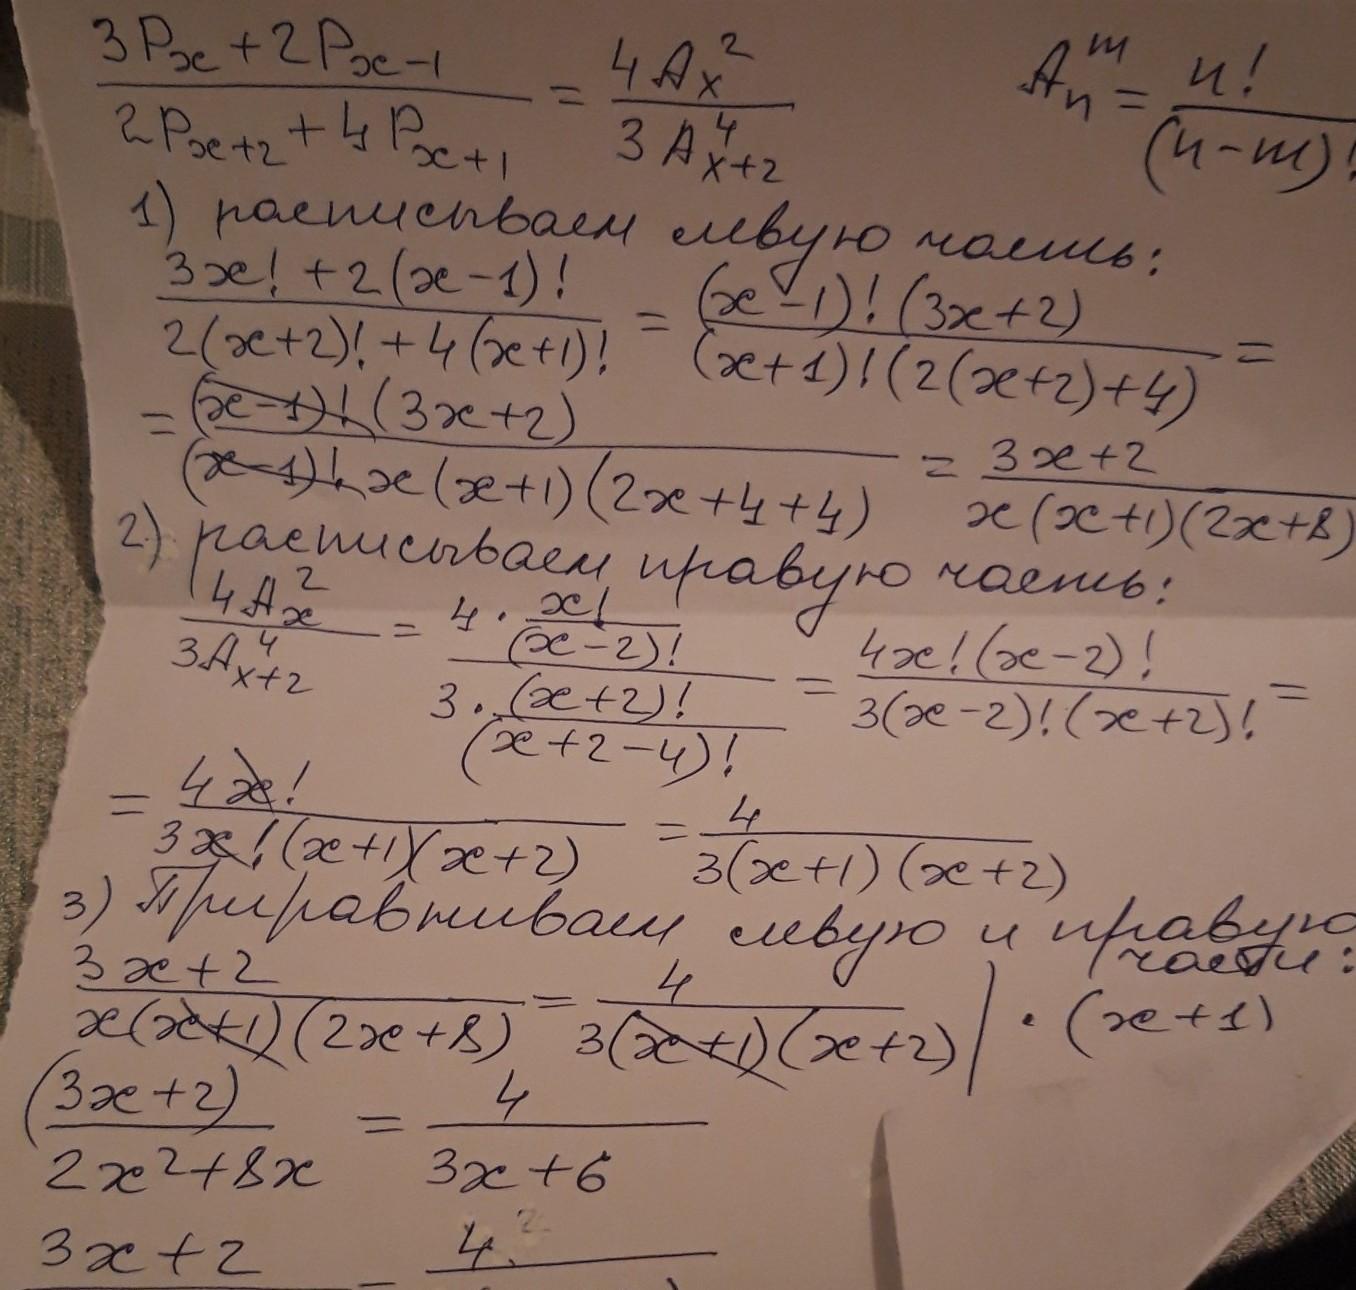 (3Pₓ + 2Pₓ₋₁)/(2Pₓ₊₂ + 4Pₓ₊₁) = 4Aₓ²/3Aₓ₊₂⁴ Aₙᵐ = n!/(n-m)!
1) расписываем левую часть:
(3x! + 2(x-1)!)/(2(x+2)! + 4(x+1)!) = ((x-1)! (3x+2))/((x+1)! (2(x+2)+4)) =
= ((x-1)! (3x+2))/((x-1)! x(x+1)(2x+4+4)) = (3x+2)/(x(x+1)(2x+8))
2) расписываем правую часть:
4Aₓ²/3Aₓ₊₂⁴ = (4 · x!/(x-2)!)/(3 · (x+2)!/(x+2-4)!) = (4x! (x-2)!)/(3(x-2)! (x+2)!) =
= 4x!/(3x! (x+1)(x+2)) = 4/(3(x+1)(x+2))
3) Приравниваем левую и правую
части:
(3x+2)/(x(x+1)(2x+8)) = 4/(3(x+1)(x+2)) | · (x+1)
(3x+2)/(2x²+8x) = 4/(3x+6)
3x+2 = 4